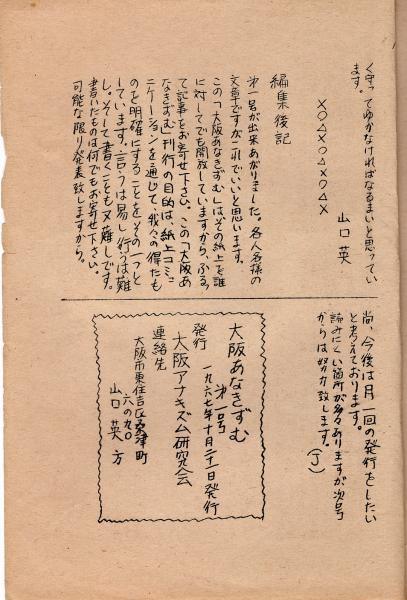 く守ってゆかなければなるまいと思ってい
ます。
山口 英
×○△×○△×○△×
編集後記
第一号が出来あがりました。各人各様の
文章ですがこれでいいと思います。
この「大阪あなきずむ」はその紙上を誰
に対してでも開放していますから、ふるっ
て記事をお寄せ下さい。この「大阪あ
なきずむ」刊行の目的は、紙上コミュ
ニケーションを通じて、我々の得たも
のを明確にすることをその一つと
しています。言うは易し行うは難
し。そして書くことも又難しです。
書いたものは何でもお寄せ下さい。
可能な限り発表致しますから。
尚、今後は月一回の発行をしたい
と考えております。
読みにくい箇所が多々ありますが次号
からは努力致します。(J)
大阪あなきずむ
第一号
一九六七年十月二十一日発行
発行
大阪アナキズム研究会
連絡先
大阪市東住吉区 津町
六の九〇
山口 英 方